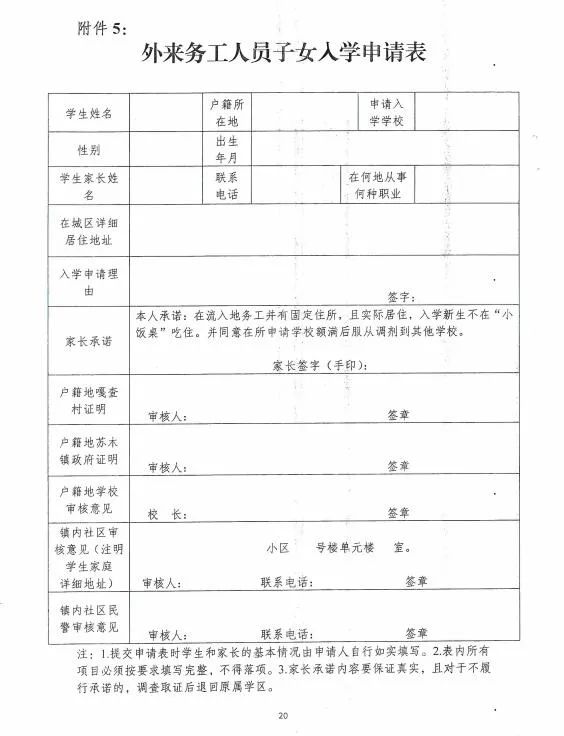 附件 5：
外来务工人员子女入学申请表
学生姓名 户籍所 申请入
在地 学学校
性别 出生
年月
学生家长姓 联系 在何地从事
名 电话 何种职业
在城区详细
居住地址
入学申请理
由 签字：
家长承诺 本人承诺：在流入地务工并有固定住所，且实际居住，入学新生不在“小
饭桌”吃住。并同意在所申请学校额满后服从调剂到其他学校。
家长签字（手印）：
户籍地嘎查
村证明 审核人： 签章
户籍地苏木
镇政府证明 审核人： 签章
户籍地学校
审核意见 校 长： 签章
镇内社区审
核意见（注明 小区 号楼单元楼 室。
学生家庭
详细地址） 审核人： 联系电话： 签章
镇内社区民
警审核意见 审核人： 联系电话： 签章
注：1.提交申请表时学生和家长的基本情况由申请人自行如实填写。2.表内所有
项目必须按要求填写完整，不得落项。3.家长承诺内容要保证真实，且对于不履
行承诺的，调查取证后退回原属学区。
20